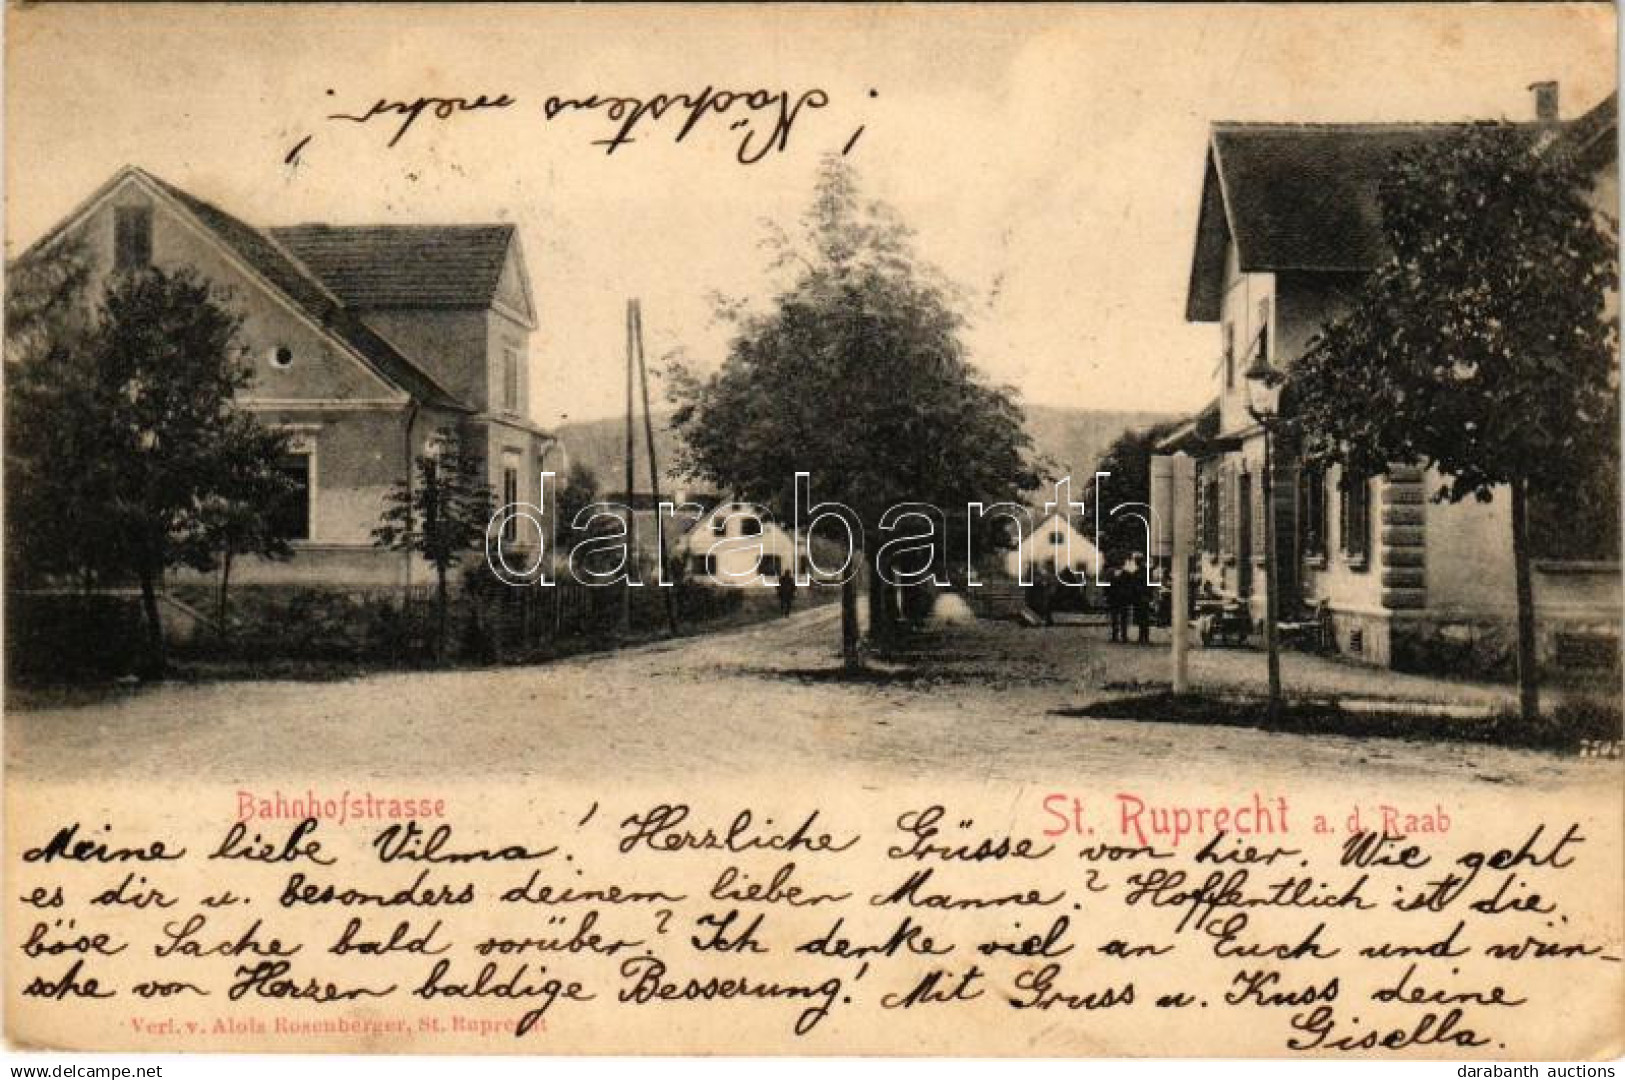 ! Nächstens mehr!
darabanth
Bahnhofstrasse
St. Ruprecht a. d. Raab
Meine liebe Vilma! Herzliche Grüsse von hier. Wie geht
es dir u. besonders deinem lieben Manne? Hoffentlich ist die
böse Sache bald vorüber? Ich denke viel an Euch und wün-
sche von Herzen baldige Besserung! Mit Gruss u. Kuss deine
Gisella.
Verl. v. Alois Rosenberger, St. Ruprecht
delcampe.net
darabanth auctions